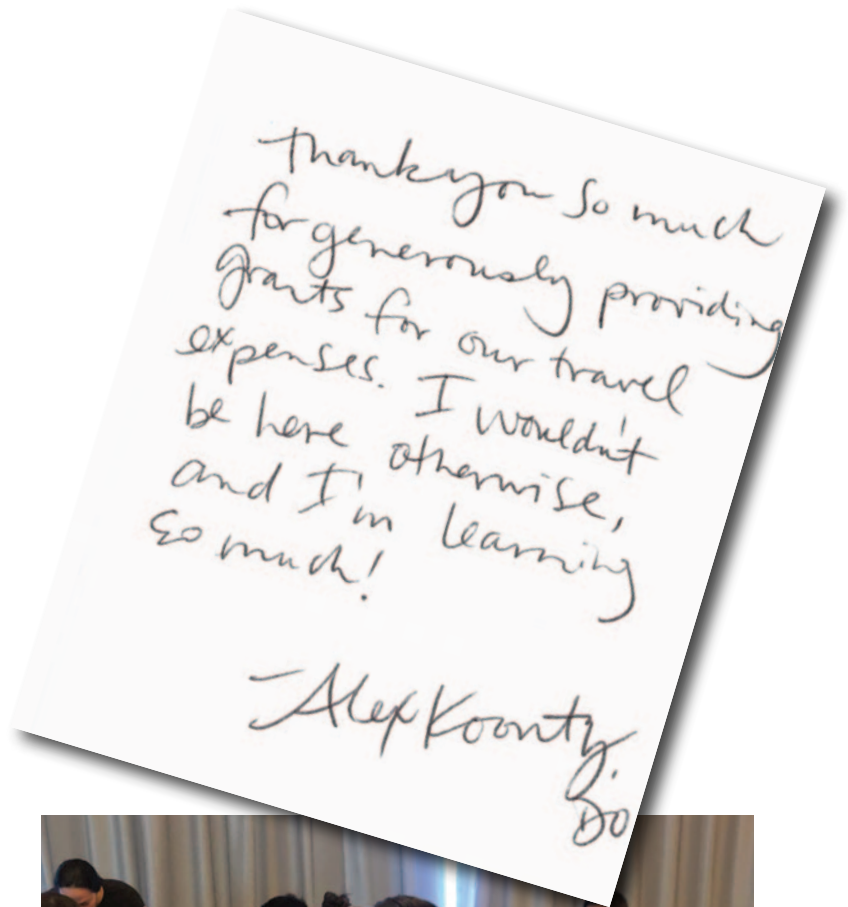 Thank you so much
for generously providing
grants for our travel
expenses. I wouldn't
be here otherwise,
and I'm learning
so much!
- Alex Koontz,
DO